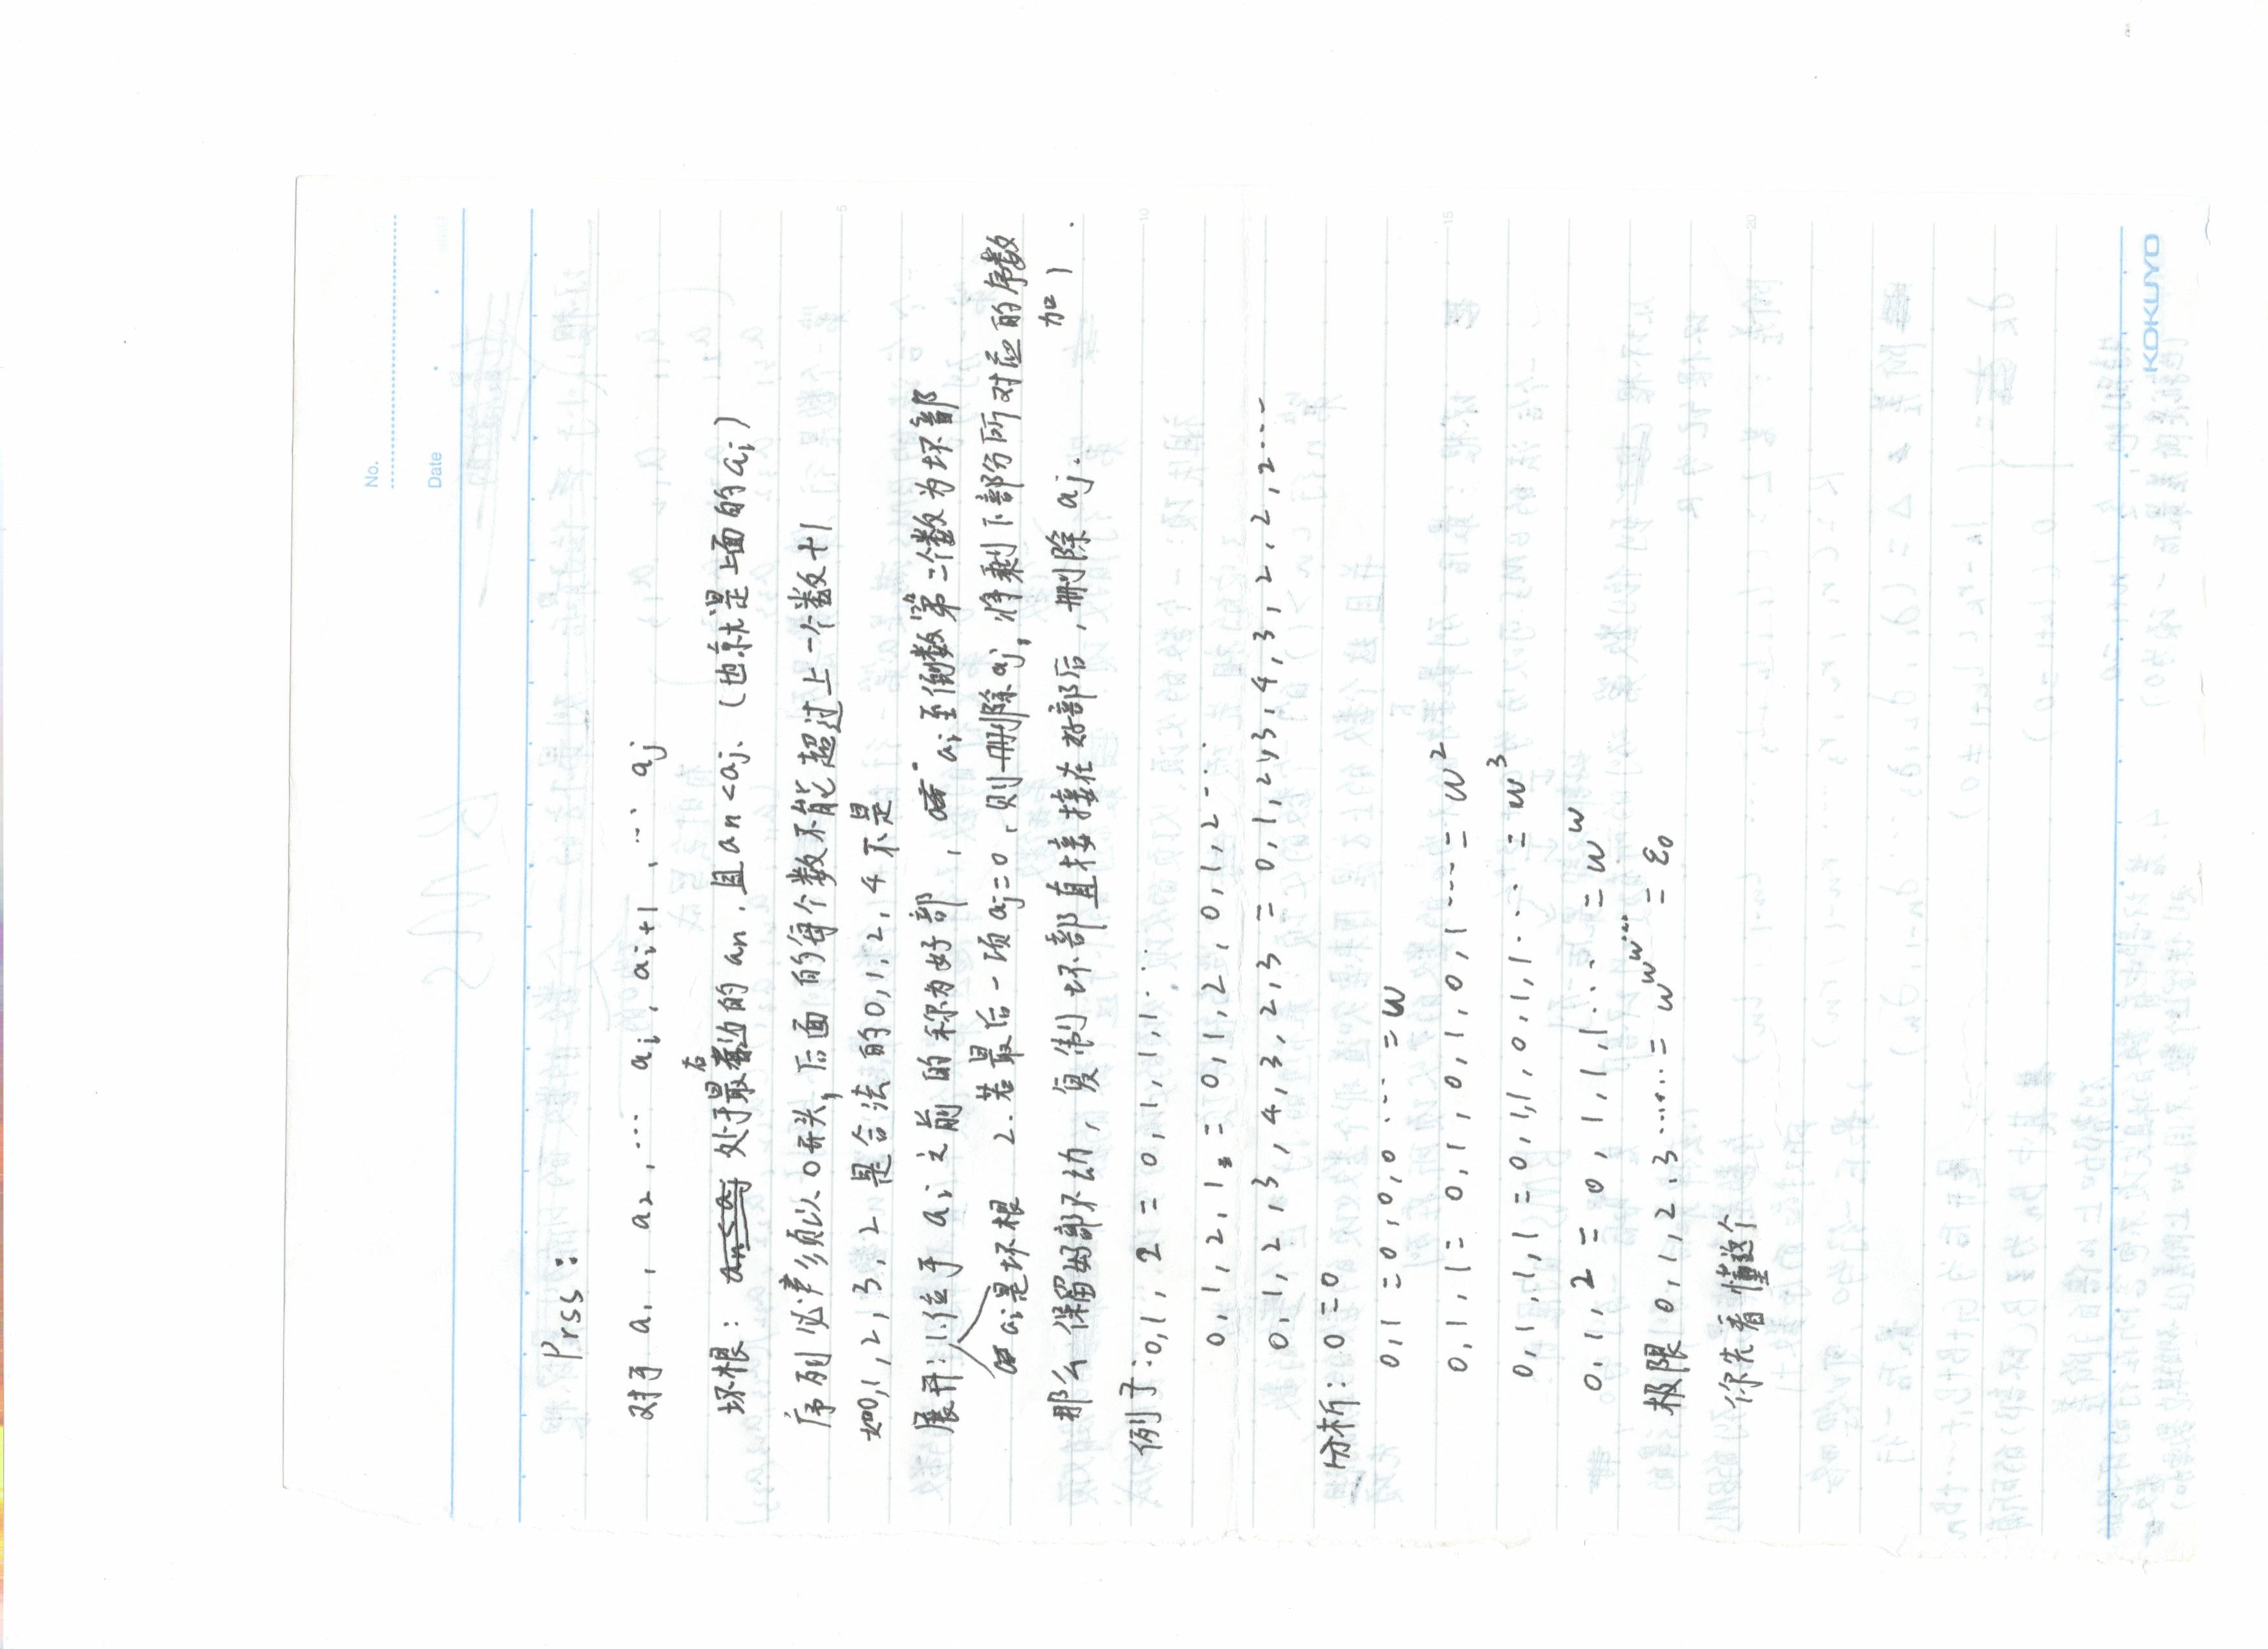 No.
Date
Prss:
对于 a1, a2, … ai, ai+1, … aj
坏根: 处于最右边的 an, 且 an<aj. (也就是上面的 ai)
序列必须以0开头, 后面的每个数不能超过上一个数+1
如0,1,2,3,2 是合法的 0,1,2,4 不是
展开: 1.位于 ai 之前的称为好部, ai 至倒数第二个数为坏部
ai是坏根 2.若最后一项 aj=0, 则删除aj, 将剩下部分所对应的序数
加1.
那么保留好部不动, 复制坏部直接接在好部后, 删除 aj.
例子: 0,1,2 = 0,1,1,1,1…
0,1,2,1 = 0,1,2,0,1,2,0,1,2…
0,1,2,3,4,3,2,3 = 0,1,2,3,4,3,2,2,2,2…
分析: 0=0
0,1 = 0,0,0,0 … = ω
0,1,1 = 0,1,0,1,0,1,0,1 … = ω^2
0,1,1,1 = 0,1,1,0,1,1,0,1,1… = ω^3
0,1,2 = 0,1,1,1,1… = ω^ω
极限 0,1,2,3……= ω^ω^ω^… = ε0
你先看懂这个
5
10
15
20
KOKUYO